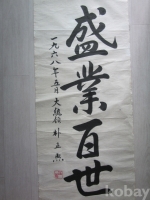 盛業百世
一九六八年五月 大統領 朴正熙
kobay